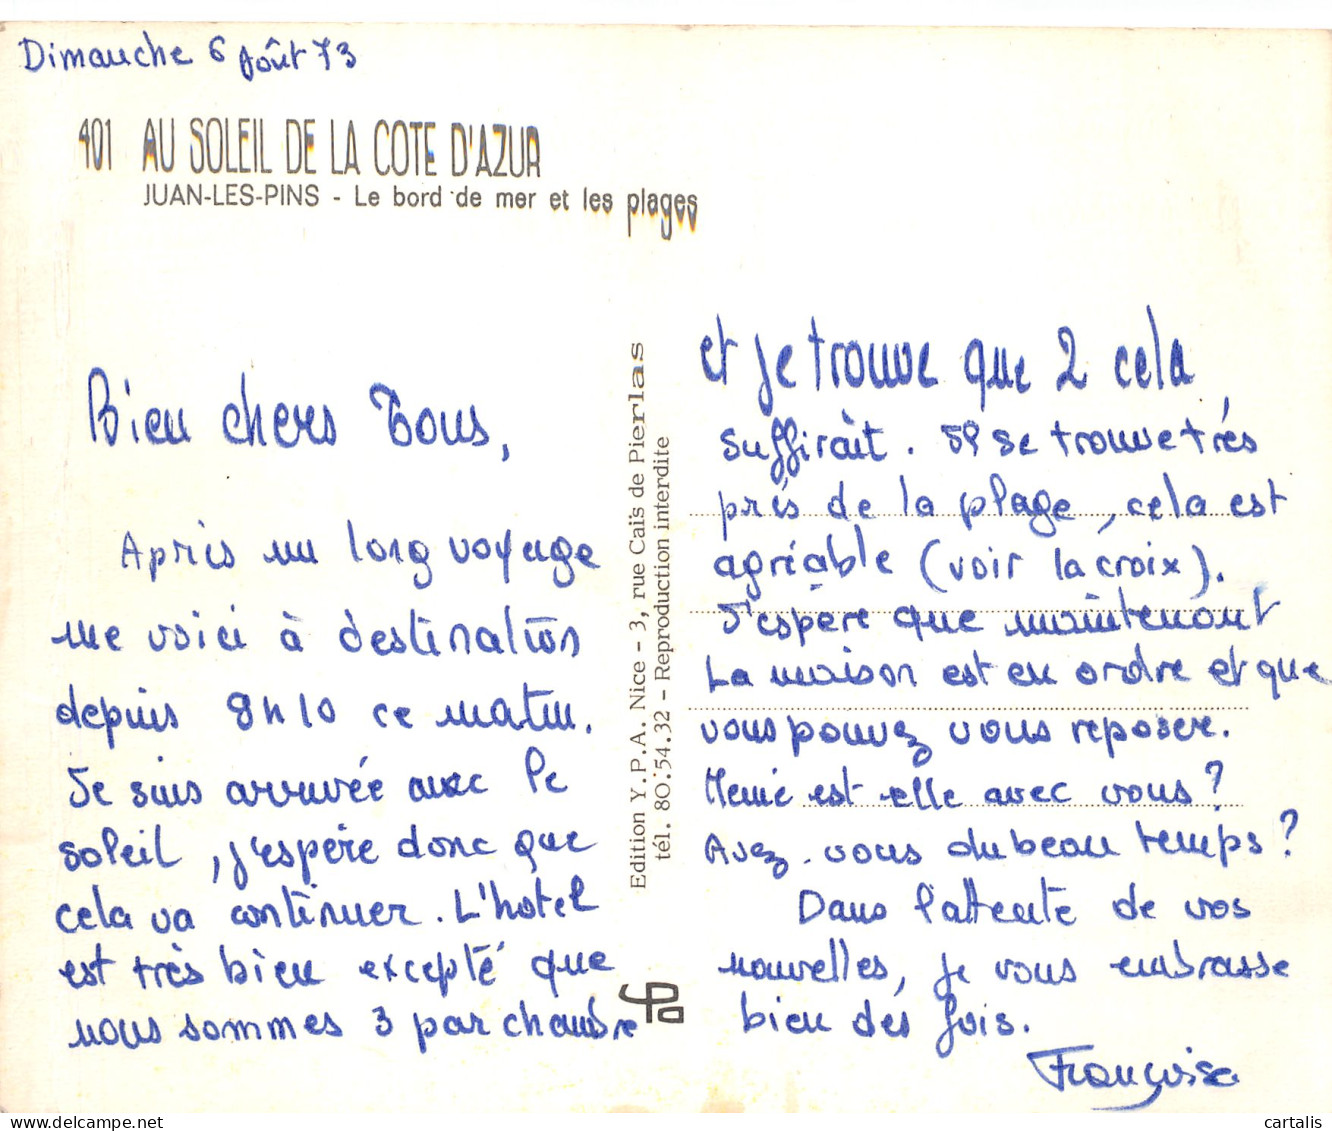 Dimanche 6 Août 73
401 AU SOLEIL DE LA COTE D'AZUR
JUAN-LES-PINS - Le bord de mer et les plages
Bien chers Tous,
Après un long voyage
me voici à destination
depuis 8h10 ce matin.
Je suis arrivée avec le
soleil, j'espère donc que
cela va continuer. L'hôtel
est très bien excepté que
nous sommes 3 par chambre
Edition Y.P.A. Nice - 3, rue Caïs de Pierlas
tél. 80.54.32 - Reproduction interdite
YPa
et je trouve que 2 cela
suffirait. Il se trouve très
près de la plage, cela est
agréable (voir la croix).
J'espère que maintenant
la maison est en ordre et que
vous pouvez vous reposer.
Mémé est-elle avec vous?
Avez-vous du beau temps?
Dans l'attente de vos
nouvelles, je vous embrasse
bien des fois.
Françoise
cartalis
delcampe.net